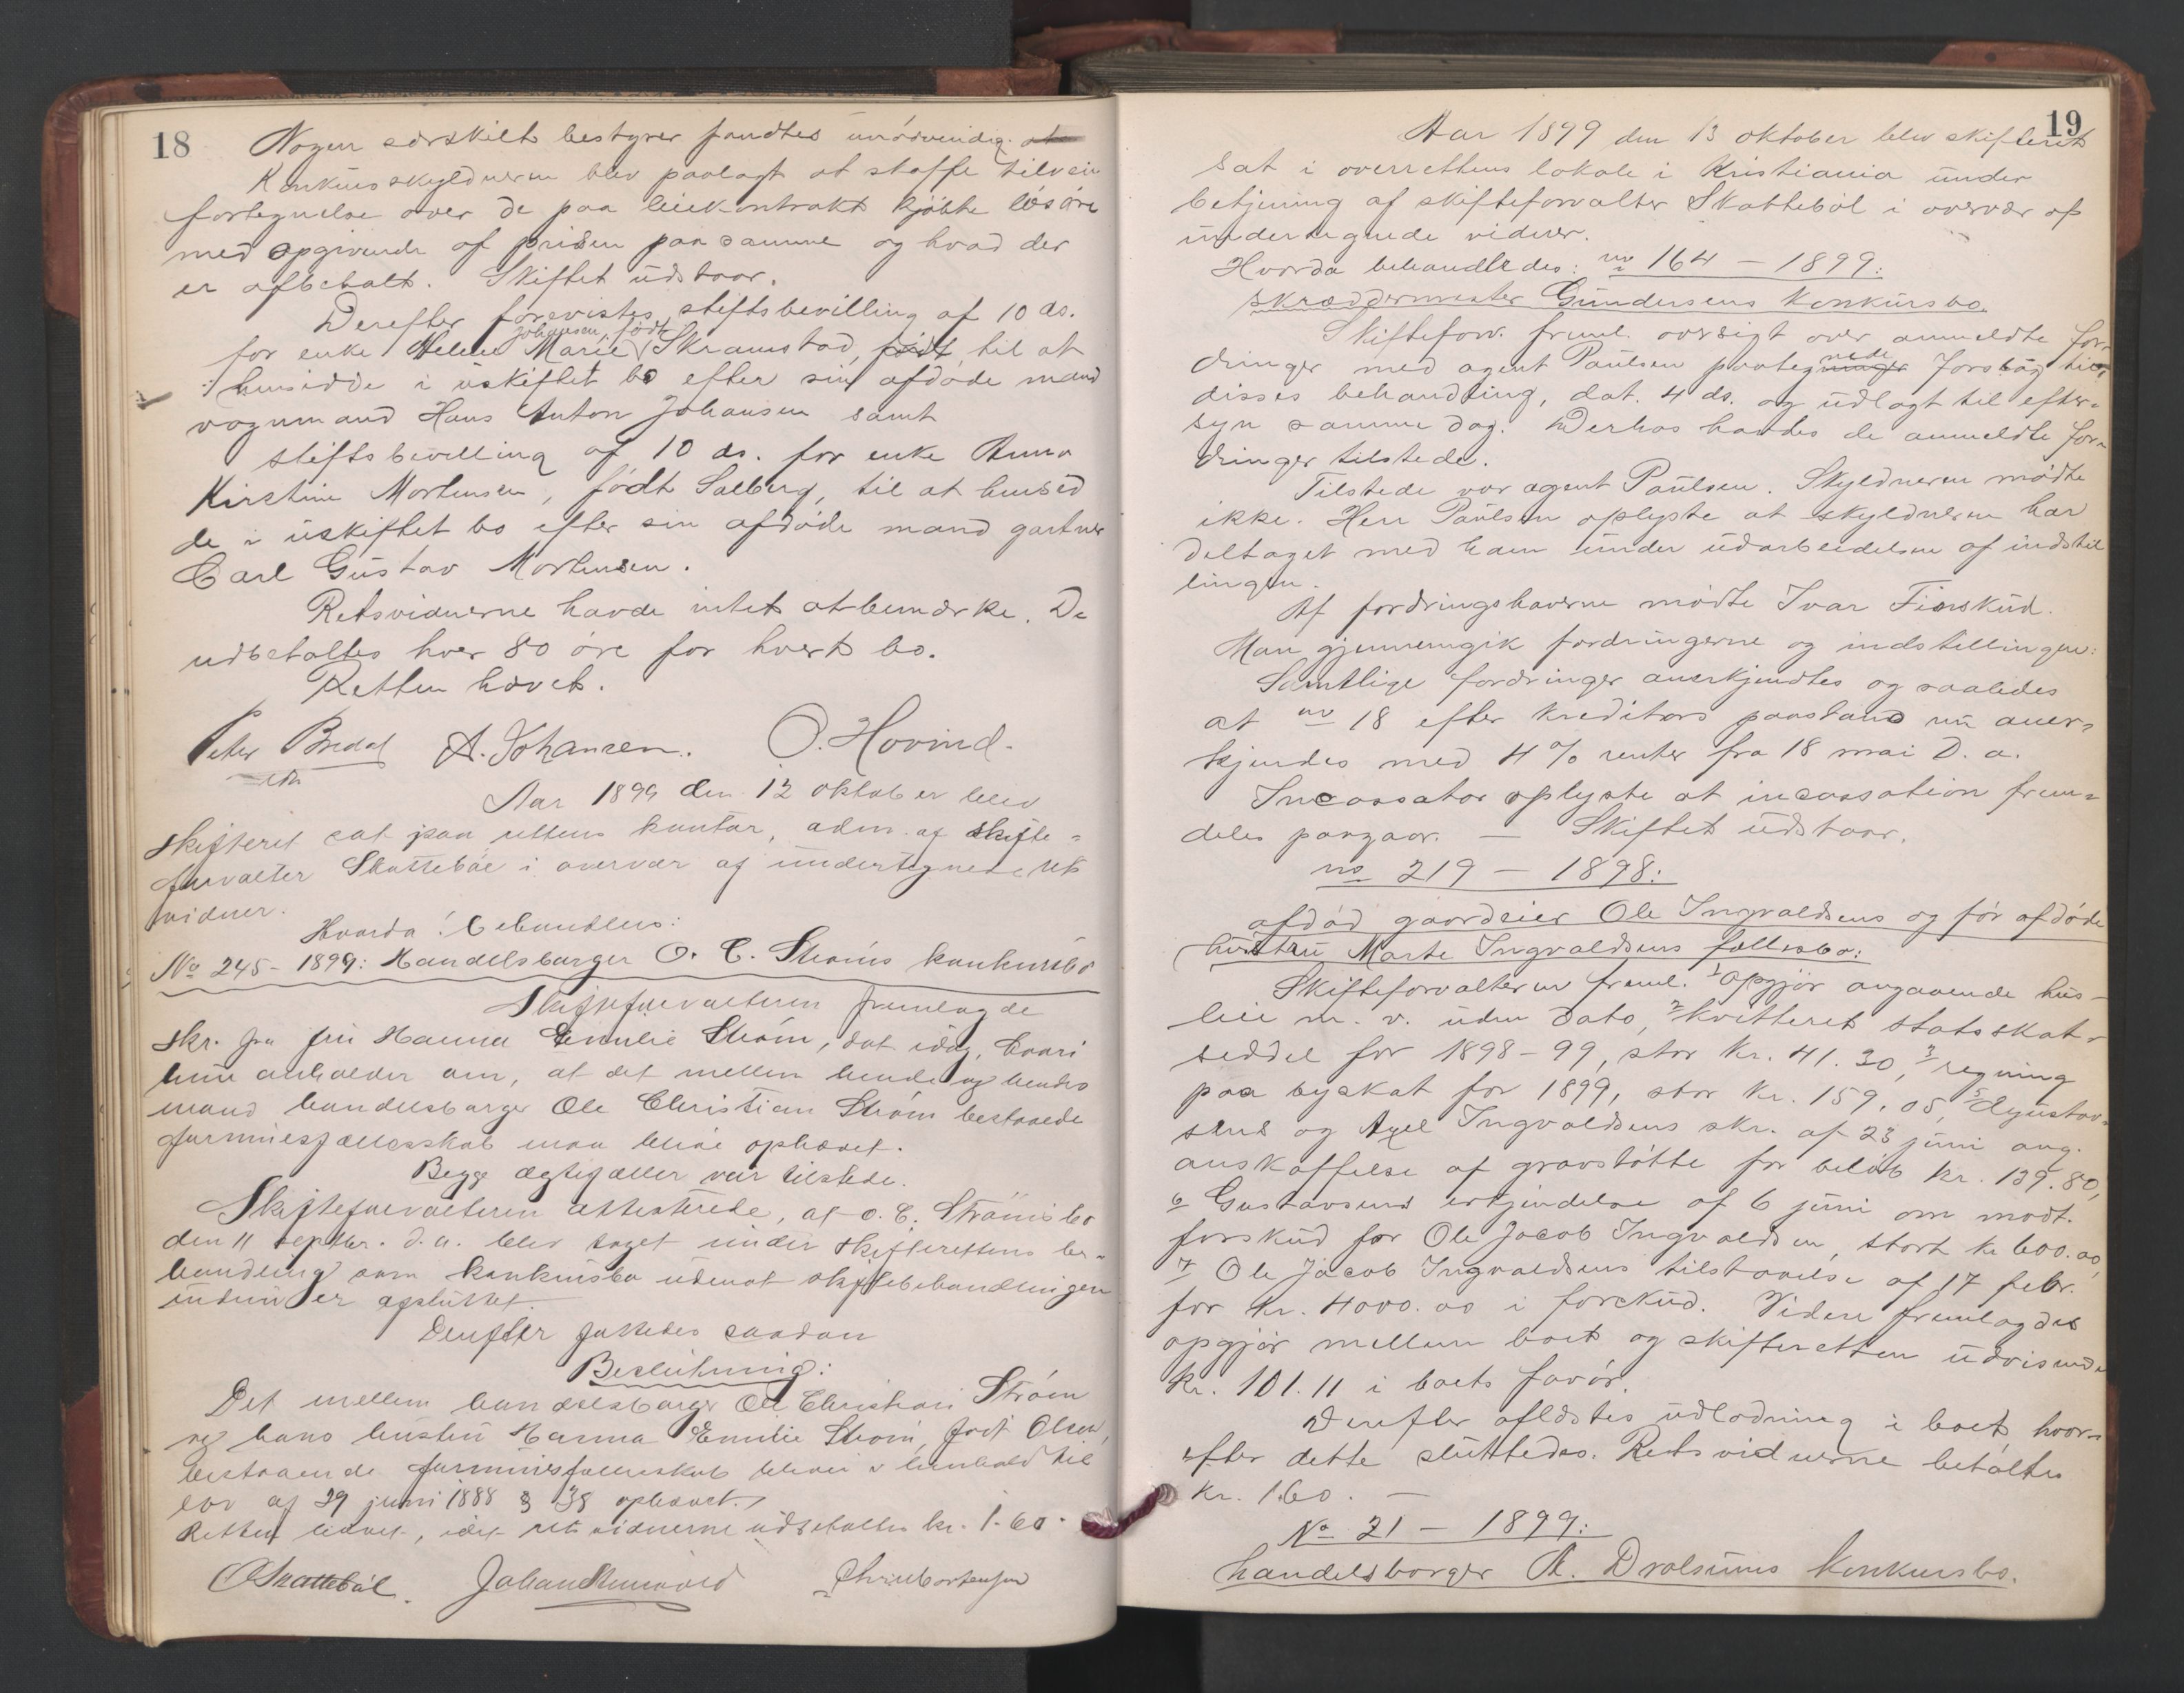 18
Nogen særskilt bestyrer fandtes unödvendig. at
Konkursskyldneren blev paalagt at skaffe tilveie
fortegnelse over de paa leiekontrakt kjöbte lösöre
med opgivende af prisen paa samme og hvad der
er afbetalt. Skiftet udstaar.
Derefter forevistes stiftsbevilling af 10 ds.
for enke Helene Marie Johansen, födt Skramstad, födt til at
hensidde i uskiftet bo efter sin afdöde mand
vognmand Hans Anton Johansen samt
stiftsbevilling af 10 ds. for enke Anna
Kirstine Mortensen, födt Solberg, til at hensid
de i uskiftet bo efter sin afdöde mand gartner
Carl Gustav Mortensen.
Retsvidnerne havde intet at bemærke. De
udbetaltes hver 80 öre for hvert bo.
Retten hævet.
Peter Bredal A. Johansen. O. Hovind.
Aar 1899 den 12 oktober blev
skifteret sat paa rettens kontor, adm. af skifte-
forvalter Skattebøl i overvær af undertegnede rets
vidner.
Hvorda behandles:
No 245 - 1899: Handelsborger O. C. Ströms konkursbo
Skifteforvalteren fremlagde
skr. fra fru Hanna Emilie Ström, dat idag, hvori
hun anholder om, at det mellem hende og hendes
mand handelsborger Ole Christian Ström bestaaede
formuesfællesskab maa blive ophævet.
Begge ægtefæller var tilstede.
Skifteforvalteren attesterede, at O. C. Ströms bo
den 11 septbr. d.a. blev taget under skifterettens be-
handling som konkursbo udenat skiftebehandlingen
endnu er afsluttet.
Derefter fattedes saadan
Beslutning:
Det mellem handelsborger Ole Christian Ström
og hans hustru Hanna Emilie Ström, födt Olsen,
bestaaende formuesfællesskab bliver i henhold til
lov af 29 juni 1888 § 38 ophævet.
Retten hævet, idet retsvidnerne udbetaltes kr. 1.60.
Skattebøl. Johan
19
Aar 1899 den 13 oktober blev skifteret
sat i overrettens lokale i Kristiania under
betjening af skifteforvalter Skatteböl i overvær af
undertegnede vidner.
Hvorda behandledes: no 164 - 1899:
skræddermester Gundersens konkursbo.
Skifteforv. freml. oversigt over anmeldte for-
dringer med agent Paulsen paategnede forslag til
disses behandling, dat. 4 ds. og udlagt til efter-
syn samme dag. Derhos havdes de anmeldte for-
dringer tilstede.
Tilstede var agent Paulsen. Skyldneren mödte
ikke. Herr Paulsen oplyste at skyldneren har
deltaget med ham under udarbeidelsen af indstil
lingen.
Af fordringshaverne mödte Ivar Finskud.
Man gjennemgik fordringerne og indstillingen:
Samtlige fordringer anerkjendtes og saaledes
at no 18 efter kreditors paastand nu aner-
kjendes med 4% renter fra 18 mai d. a.
Incassator oplyste at incassation frem-
deles paagaar. — Skiftet udstaar.
no 219 - 1898:
afdöd gaardeier Ole Ingvaldsens og för afdöde
hustru Marte Ingvaldsens fællesbo:
Skifteforvalteren freml. 1 opgjör angaaende hus-
leie m. v. uden dato, 2 kvitteret statsskat-
seddel for 1898-99, stor kr. 41.30, 3 regning
paa byskat for 1899, stor kr. 159.05, 5 Gustav-
sens og Axel Ingvaldsens skr. af 23 juni ang.
anskaffelse af gravstötte for belöb kr. 139.80,
6 Gustavsens erkjendelse af 6 juni om modt.
forskud for Ole Jacob Ingvaldsen, stort kr 600.00,
7 Ole Jacob Ingvaldsens tilstaaelse af 17 febr.
for kr. 4000.00 i forskud. Videre fremlagdes
opgjör mellem boet og skifteretten udvisende
kr. 101.11 i boets favör.
Derefter aflæstes udlodning i boet, hvor-
efter dette sluttedes. Retsvidnerne betaltes
kr. 1.60. —
No 21 - 1899:
handelsborger A. Drolsums konkursbo.